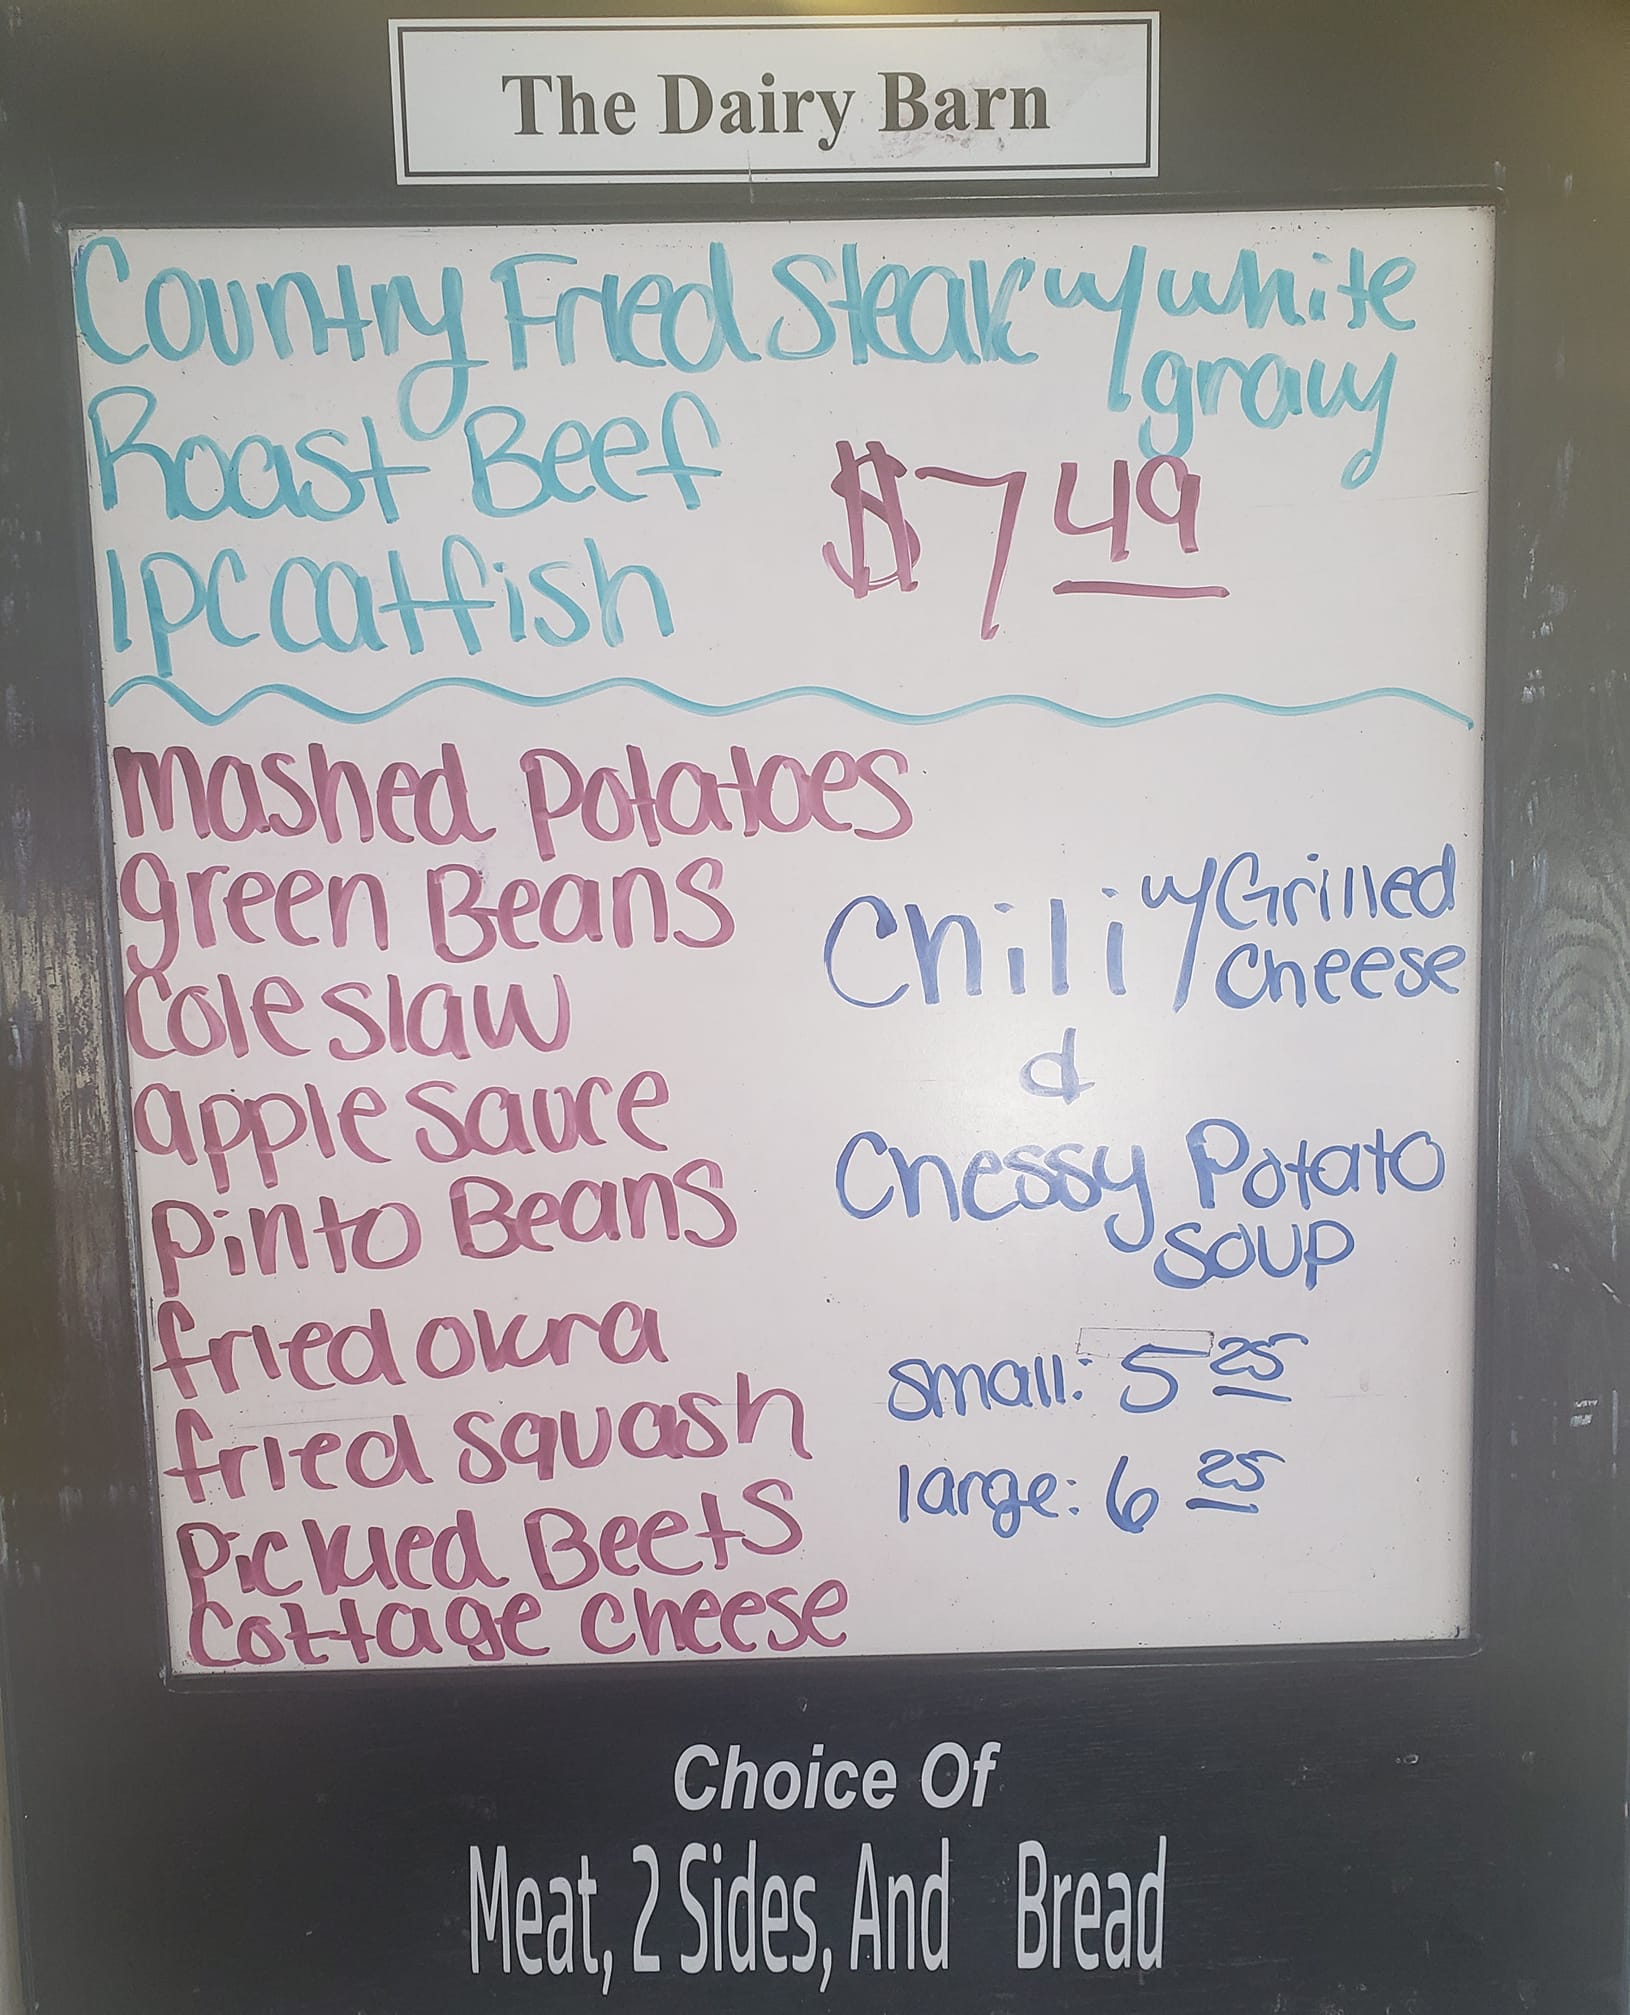 The Dairy Barn
Country Fried Steak w/ white
gravy
Roast Beef
$7 49
1pc catfish
mashed potatoes
green Beans
Cole slaw
apple sauce
pinto Beans
fried okra
fried squash
Pickled Beets
Cottage cheese
Chili w/ Grilled
Cheese
&
Chessy Potato
soup
small: 5 25
large: 6 25
Choice Of
Meat, 2 Sides, And Bread